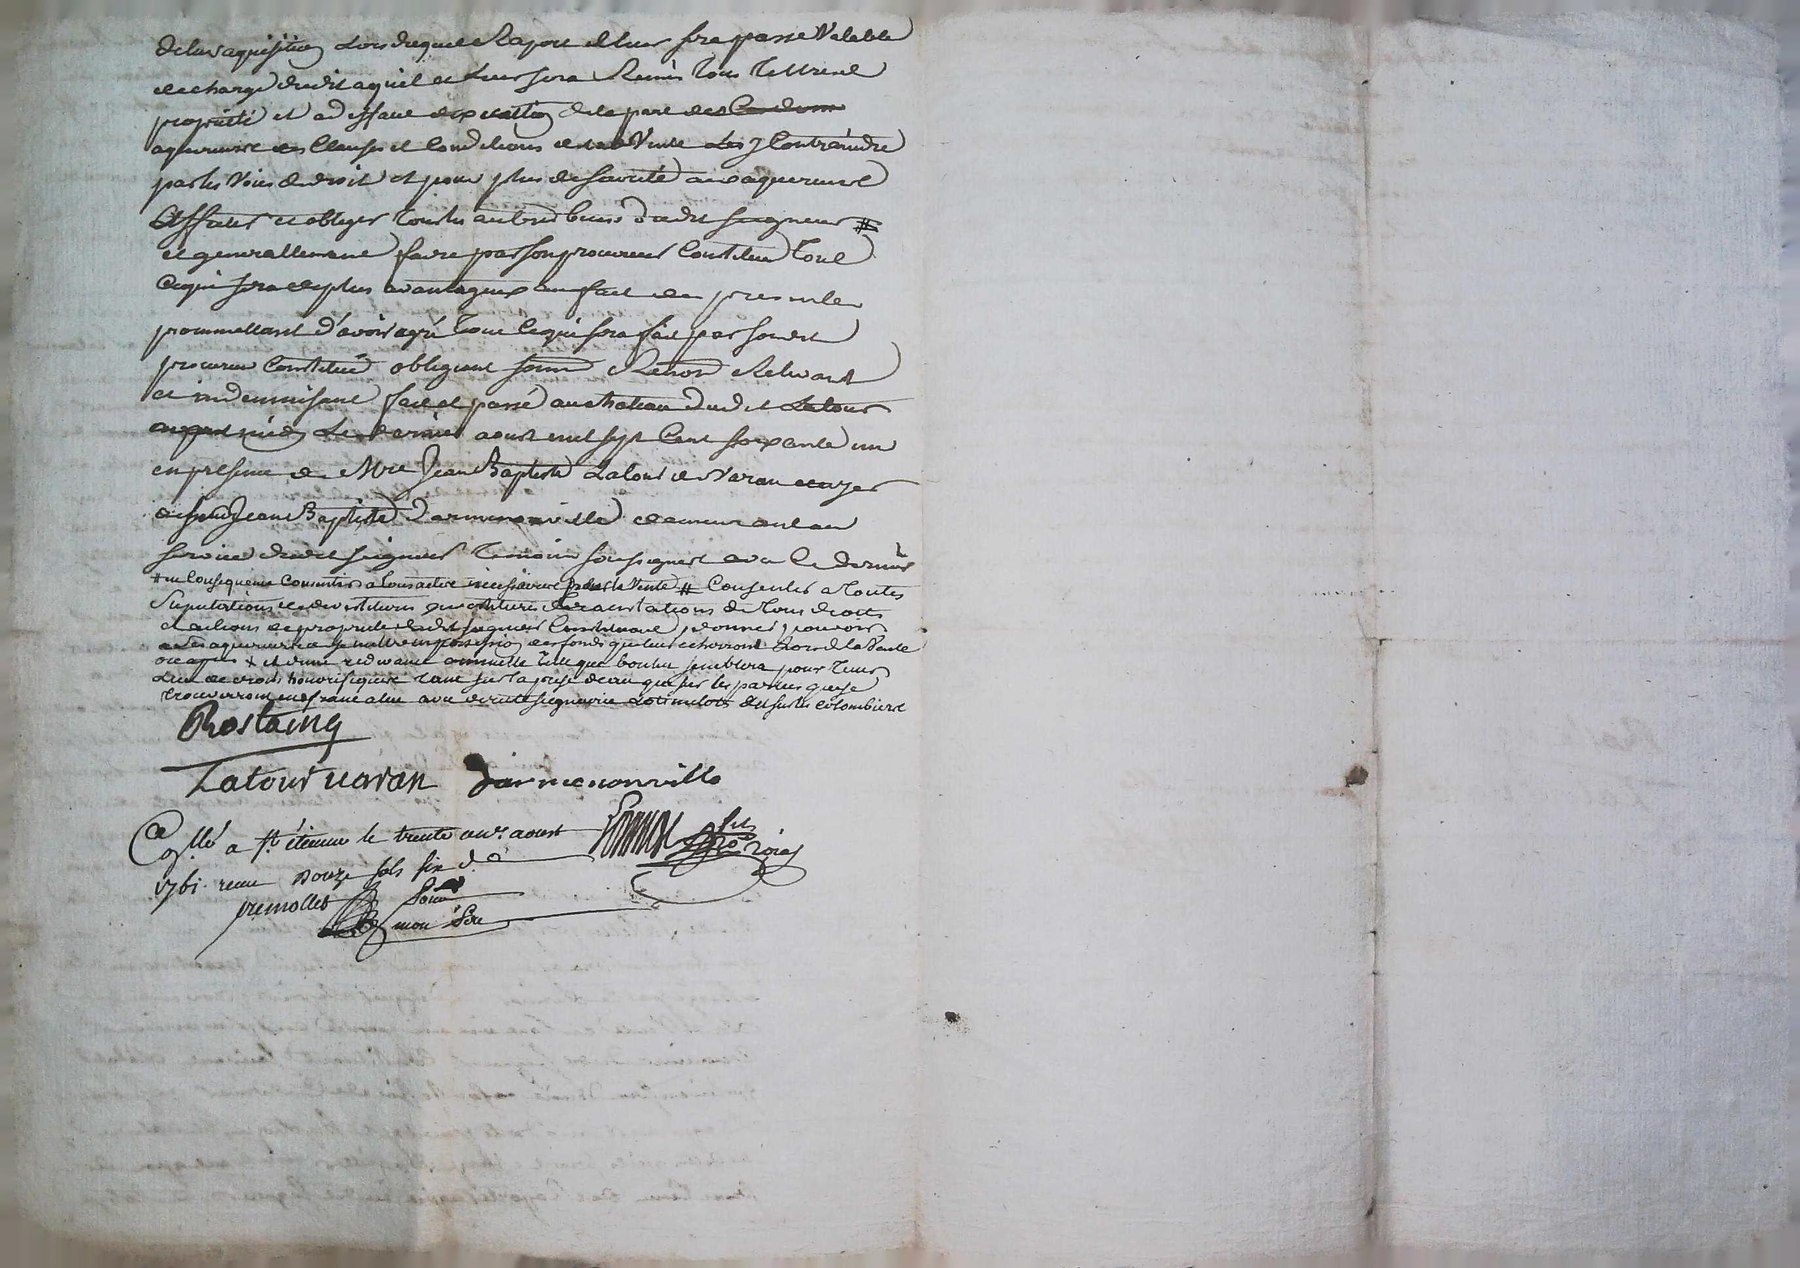 de leur aquisition Lors duquel Raport il leur sera passé Valable
decharge dudit aquit et Leur sera Remis Tous Tittres de
proprieté et a deffaut dexecution de la part des
aquereurs des Clauses et Conditions de la Vente Les y Contraindre
par les Voies de droit et pour plus de seureté aux aquereurs
Affecter et obliger Tous les autres biens dudit seigneur #
et generallement faire par son procureur Constitué Tout
Ce qui sera de plus avantageux au fait des presentes
prommettant d'avoir agré Tout Ce qui sera fait par sondit
procureur Constitué obligeant Relevant
et indemnisant fait et passé au chateau dudit Latour
Le dernier aoust mil sept Cent soixante un
en presence de Mre Jean Baptiste Latour de Varan ecuyer
et de sieur Jean Baptiste Darmenonville demeurant au
service dudit seigneur Temoins soussignes avec Ce dernier
# en Consequence Consentir a Tous actes necessaires pour la Vente # Consentir a Toutes
Stipulations de devestitures investitures Translations de Tous droits
et actions de proprieté ledit seigneur Constituant, donner pouvoir
aux aquereurs de se mettre en possession des fonds qui leur echeront Lors de la Vente
+ et d'une redevance annuelle Telle que bon lui semblera pour Tenir
Lieu de droits honorifiques tant sur la prise d'eau que sur les parties qui se
trouverront en franc aleu avec directe seigneurie colombier
Rostaing
Latour varan Darmenonville
Collé a St étienne le trente un aoust
1761 receu Douze sols six d.
premollet
mon